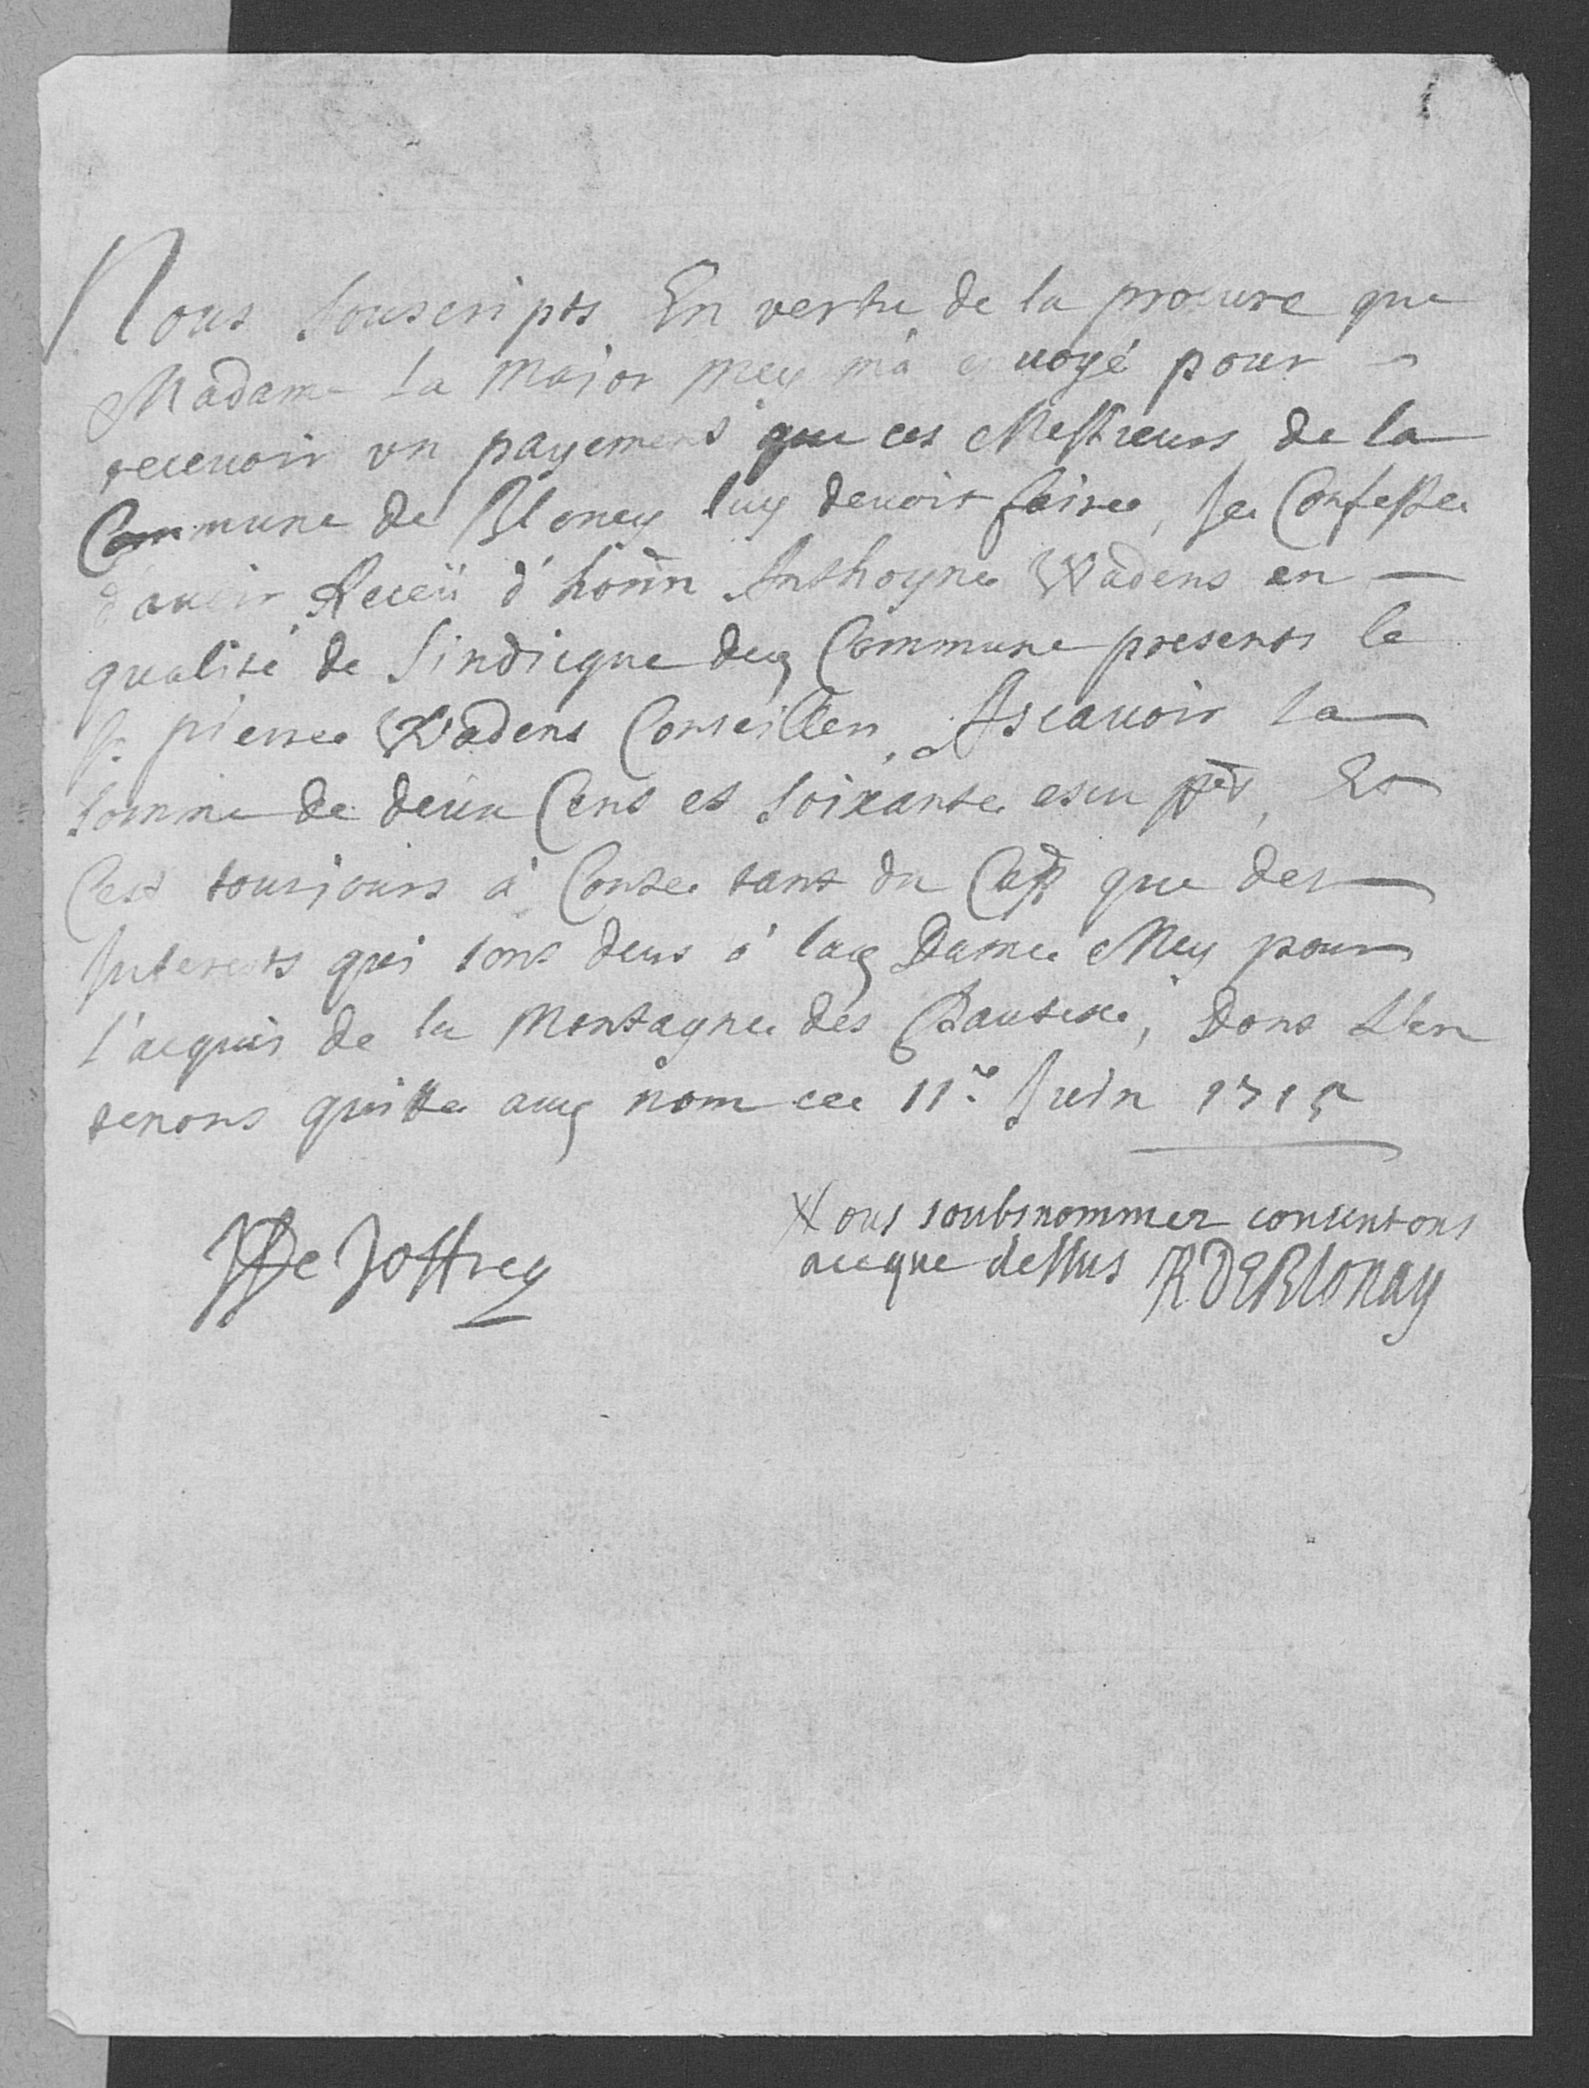 Nous souscripts En vertu de la procure que
Madame la Major Mey m'a envoyé pour
recevoir vn payement que ces Messieurs de la
Commune de Bloney luy devoit faire, Je Confesse
d'avoir Receü d'hon̄n Anthoyne Wadens en
qualité de Sindicque de Commune presents le
Sr pierre Wadens Conseiller, Ascavoir la
somme de deux Cens et soixante escu Et
C'est tousjours à Conte tant du Cap que des
Interests qui sont deus à Dame Mey pour
l'acquis de la Montagne des, Dont L'en
tenons quitte nom ce 11e Juin 1715
Nous soubsnommer consentons
aceque dessus R DE Blonay
De Joffrey